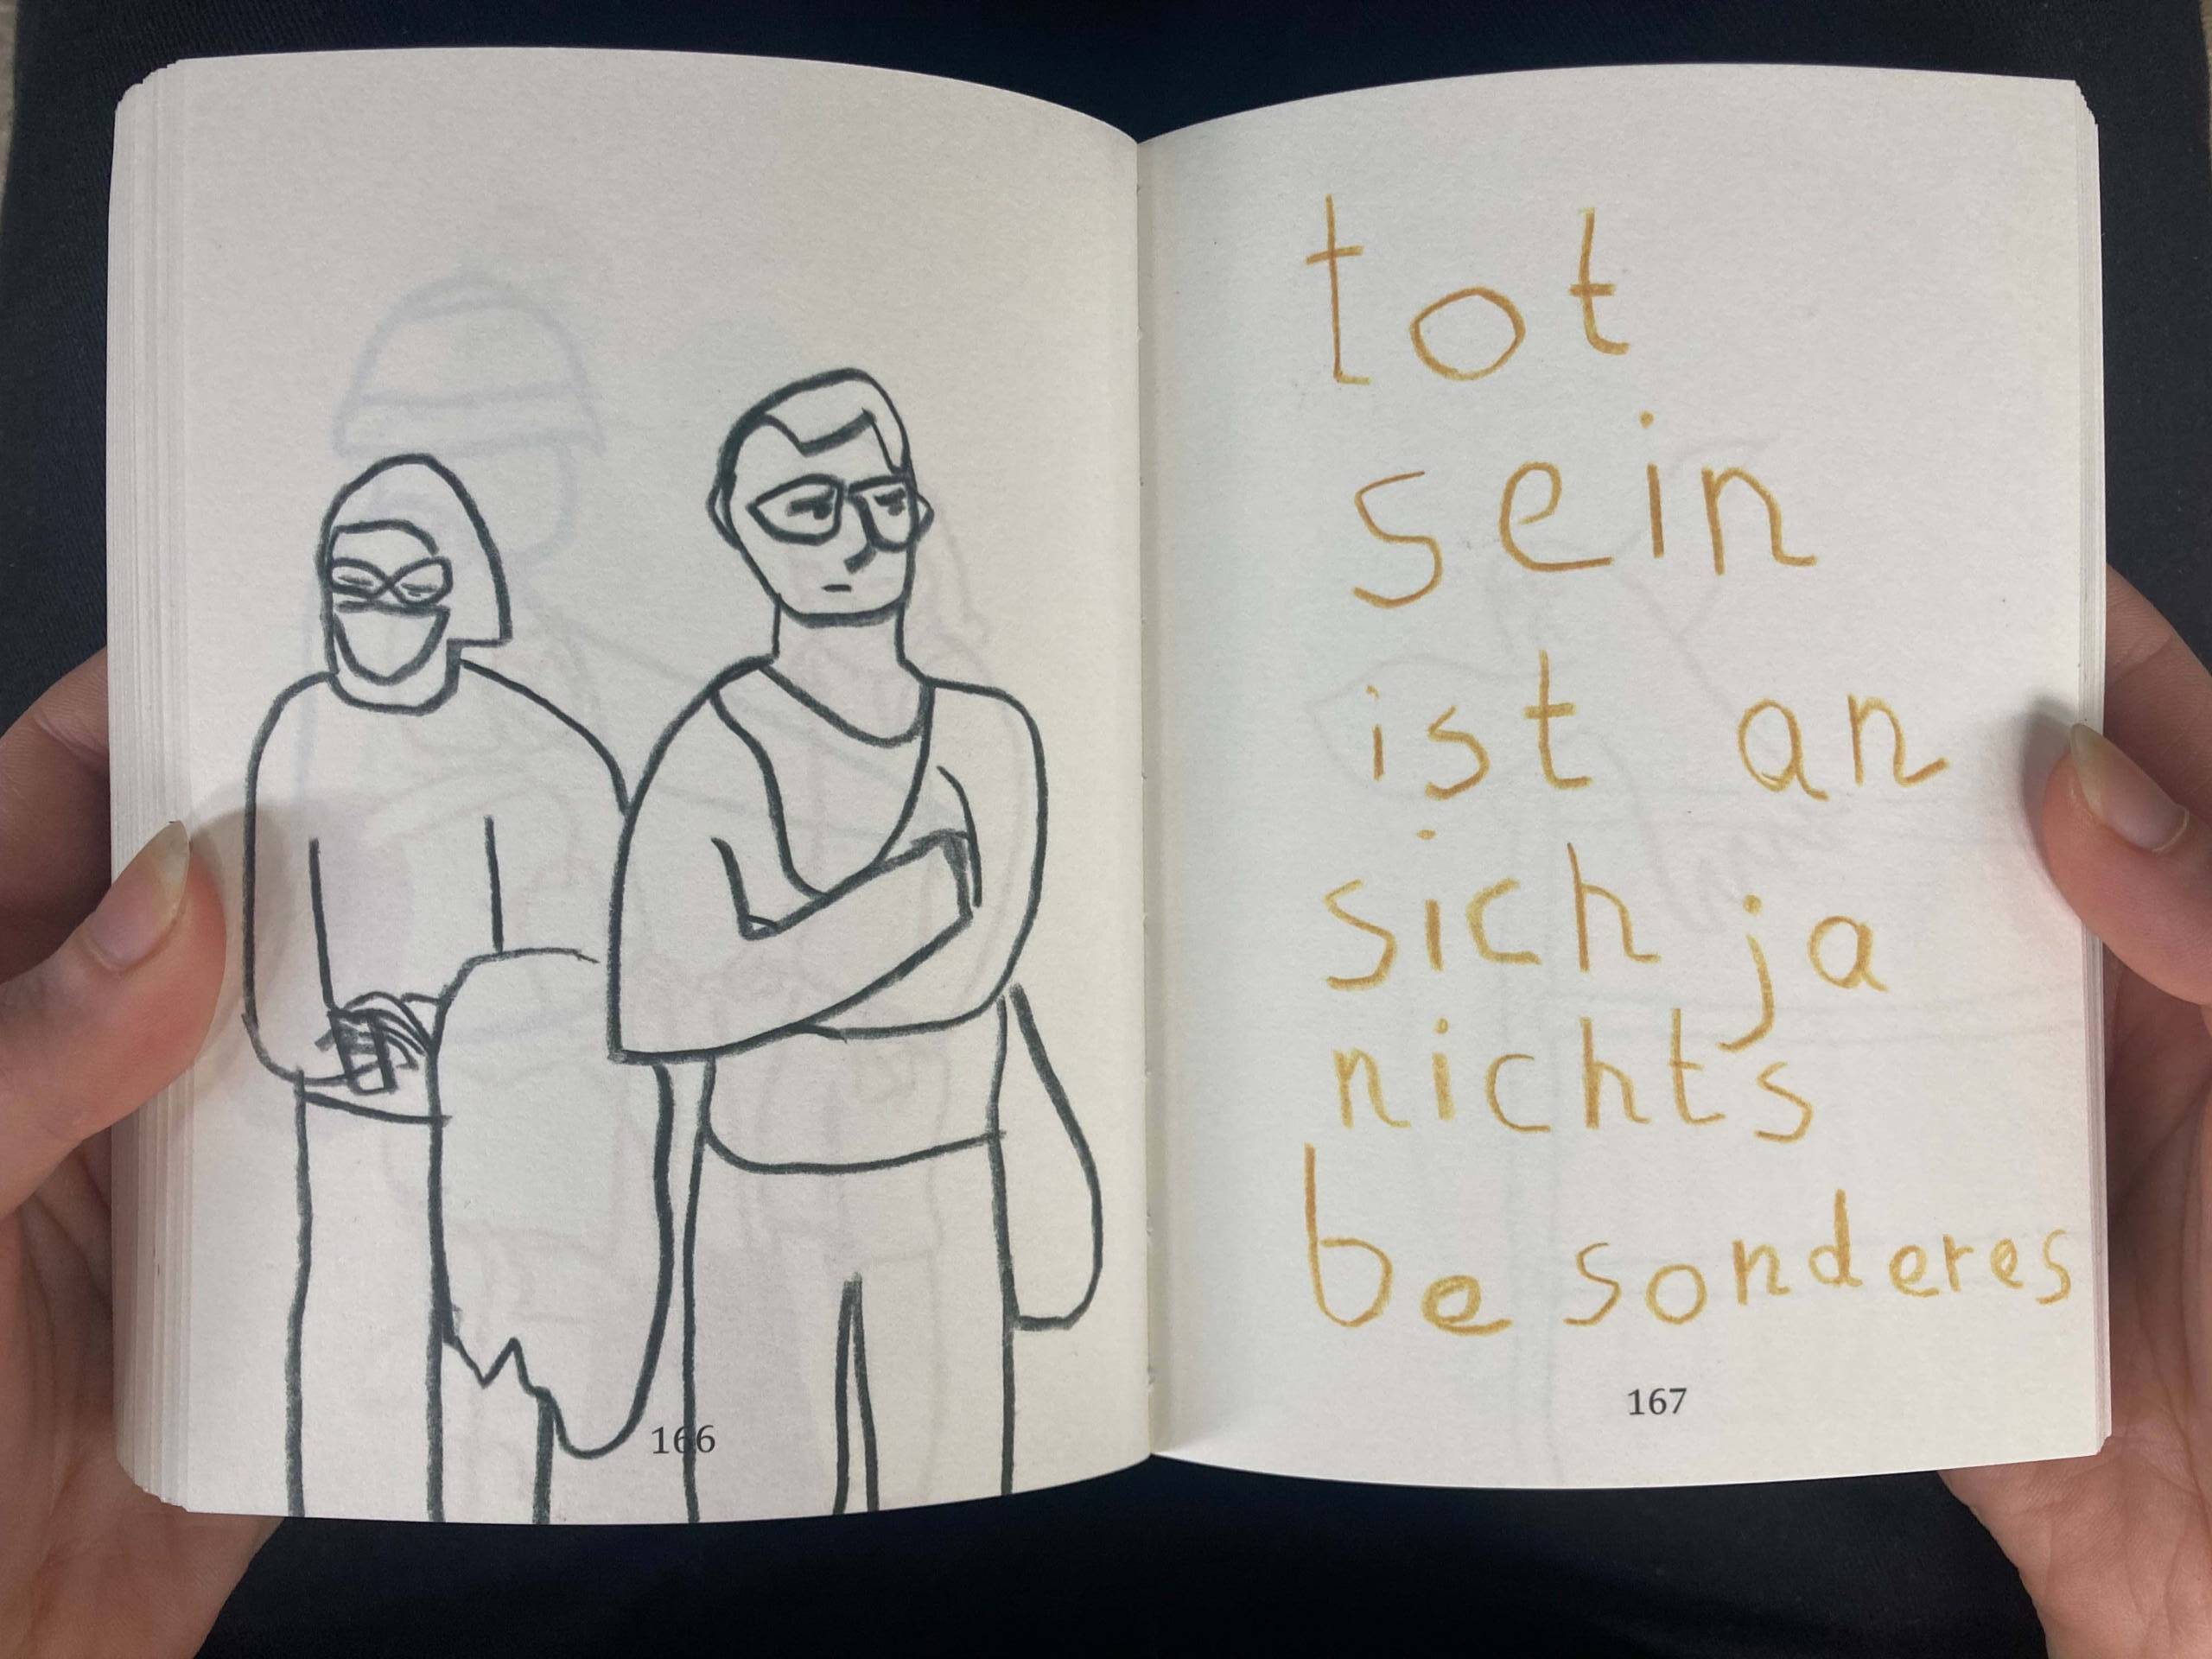 166
tot
sein
ist an
sich ja
nichts
besonderes
167